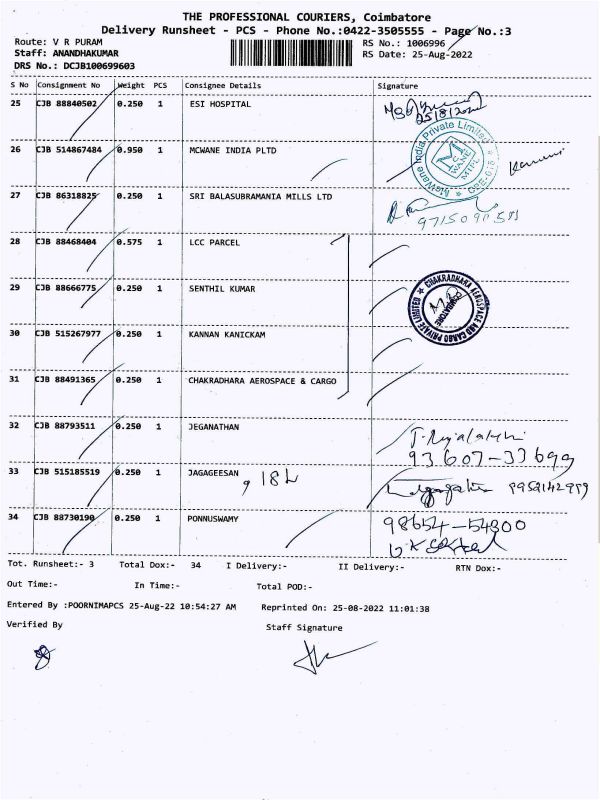 THE PROFESSIONAL COURIERS, Coimbatore
Delivery Runsheet - PCS - Phone No.:0422-3505555 - Page No.:3
Route: V R PURAM RS No.: 1006996
Staff: ANANDHAKUMAR RS Date: 25-Aug-2022
DRS No.: DCJB100699603
S No Consignment No Weight PCS Consignee Details Signature
25 CJB 88840502 0.250 1 ESI HOSPITAL
25/8/2022
26 CJB 514867484 0.950 1 MCWANE INDIA PLTD
McWane India Private Limited
27 CJB 86318825 0.250 1 SRI BALASUBRAMANIA MILLS LTD
28 CJB 88468404 0.575 1 LCC PARCEL
29 CJB 88666775 0.250 1 SENTHIL KUMAR
CHAKRADHARA AEROSPACE AND CARGO PRIVATE LIMITED
COIMBATORE
30 CJB 515267977 0.250 1 KANNAN KANICKAM
31 CJB 88491365 0.250 1 CHAKRADHARA AEROSPACE & CARGO
32 CJB 88793511 0.250 1 JEGANATHAN
93607-33699
33 CJB 515185519 0.250 1 JAGAGEESAN
34 CJB 88730190 0.250 1 PONNUSWAMY
98654-54300
Tot. Runsheet:- 3 Total Dox:- 34 I Delivery:- II Delivery:- RTN Dox:-
Out Time:- In Time:- Total POD:-
Entered By :POORNIMAPCS 25-Aug-22 10:54:27 AM Reprinted On: 25-08-2022 11:01:38
Verified By Staff Signature